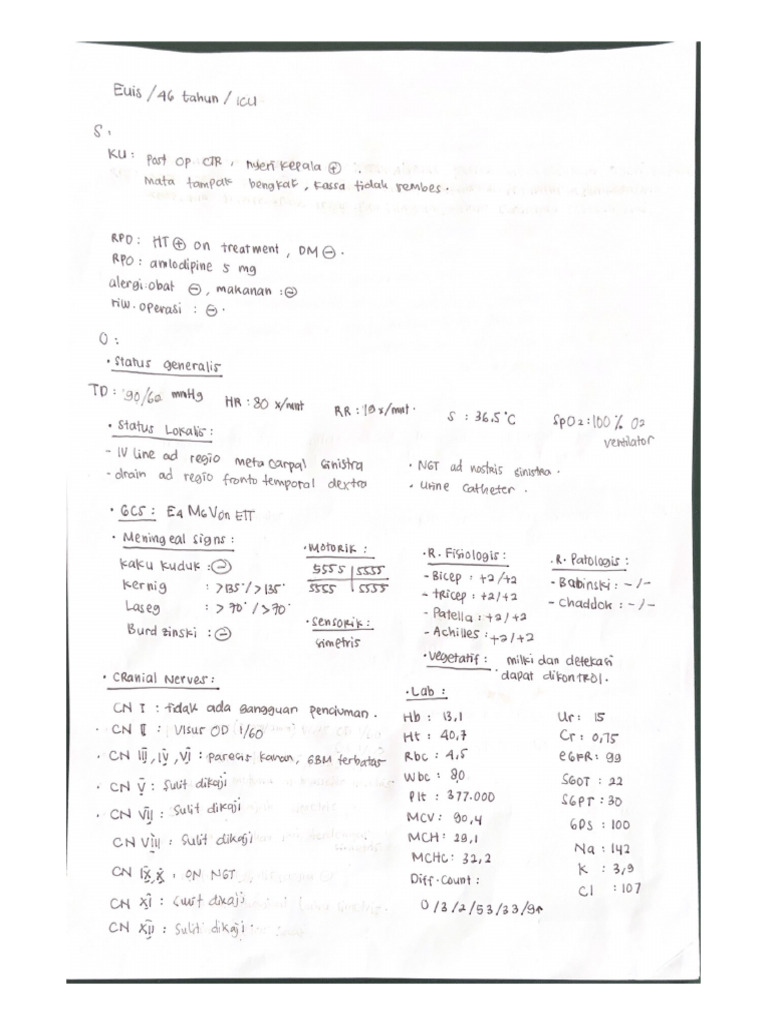 Euis / 46 tahun / ICU
S:
KU: Post Op CTR, nyeri kepala ⊕.
Mata tampak bengkak, kassa tidak rembes.
RPD: HT ⊕ on treatment, DM ⊖.
RPO: amlodipine 5 mg
alergi: obat ⊖, makanan: ⊖
riw. operasi: ⊖.
O:
• Status generalis
TD: 90/60 mmHg HR: 80 x/mnt RR: 18 x/mnt. S: 36.5°C SpO2: 100% O2 ventilator
• Status Lokalis:
- IV line ad regio metacarpal sinistra
- drain ad regio frontotemporal dextra
• NGT ad nostris sinistra.
• Urine Catheter.
• GCS: E4 M6 V on ETT
• Meningeal signs:
kaku kuduk: ⊖
Kernig : >135°/>135°
Laseg : >70°/>70°
Burdzinski: ⊖
• Motorik:
5555 | 5555
5555 | 5555
• Sensorik:
simetris
• R. Fisiologis:
- Bicep: +2/+2
- tricep: +2/+2
- Patella: +2/+2
- Achilles: +2/+2
• R. Patologis:
- Babinski: -/-
- Chaddok: -/-
• Vegetatif: miksi dan defekasi
dapat dikontrol.
• Cranial Nerves:
CN I: tidak ada gangguan penciuman.
• CN II: Visur OD 1/60
• CN III, IV, VI: paresis kanan, GBM terbatas
• CN V: Sulit dikaji
• CN VII: Sulit dikaji
CN VIII: Sulit dikaji
CN IX, X: ON NGT
• CN XI: Sulit dikaji
CN XII: Sulit dikaji
• Lab:
Hb: 13,1
Ht: 40,7
Rbc: 4,5
Wbc: 8,0
Plt: 377.000
MCV: 90,4
MCH: 29,1
MCHC: 32,2
Diff. Count:
0/3/2/53/33/9↑
Ur: 15
Cr: 0,75
eGFR: 99
SGOT: 22
SGPT: 30
GDS: 100
Na: 142
K: 3,9
Cl: 107